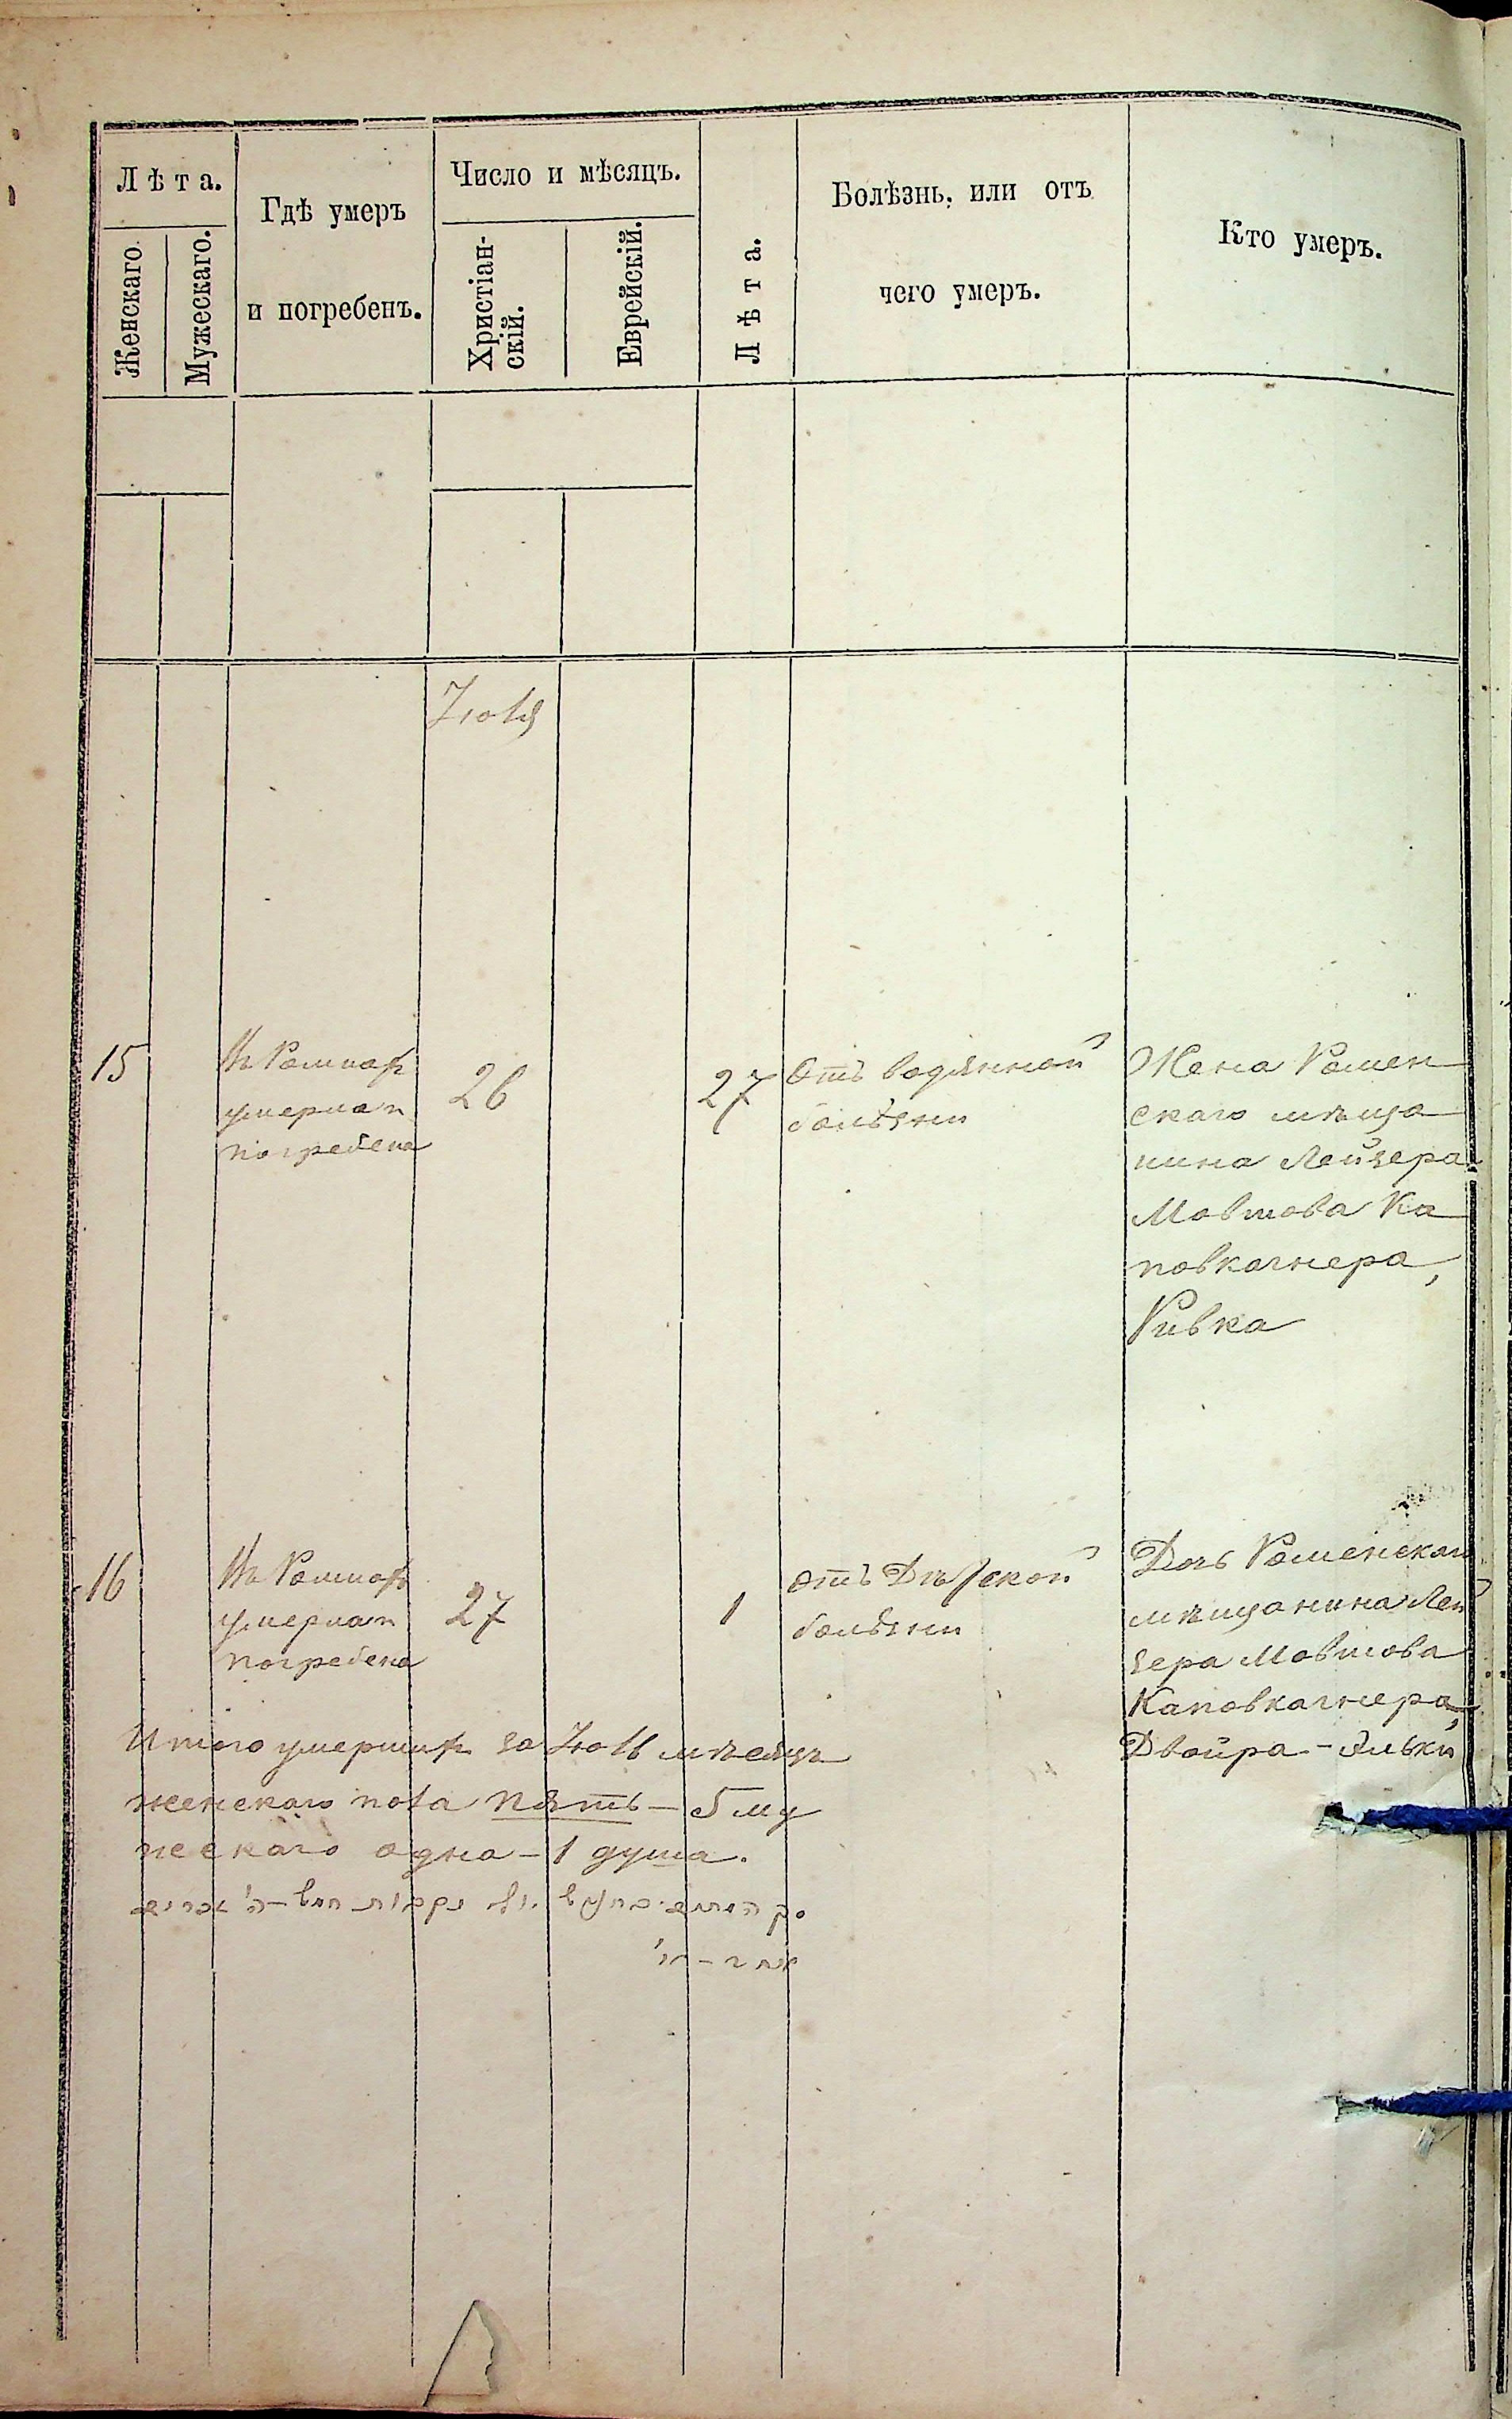 Лѣта.
Женскаго
Мужескаго.
Гдѣ умеръ
и погребенъ.
Число и мѣсяцъ.
Христіан-
скій.
Еврейскій.
Лѣта.
Болѣзнь, или отъ
чего умеръ.
Кто умеръ.
Іюля
15
Въ Ромнахъ
умерла и
погребена
26
27
Отъ водянной
болѣзни
Жена Ромен
скаго мѣща
нина Лейзера
Мовшова Ка
повкагнера,
Ривка
16
Въ Ромнахъ
умерла и
погребена
27
1
Отъ Дѣтской
болѣзни
Дочь Роменскаго
мѣщанина Лей
зера Мовшова
Каповкагнера,
Двойра-Элька
Итого умершихъ за Іюль мѣсяцъ
женскаго пола пять - 5 му
жескаго одна - 1 душа.